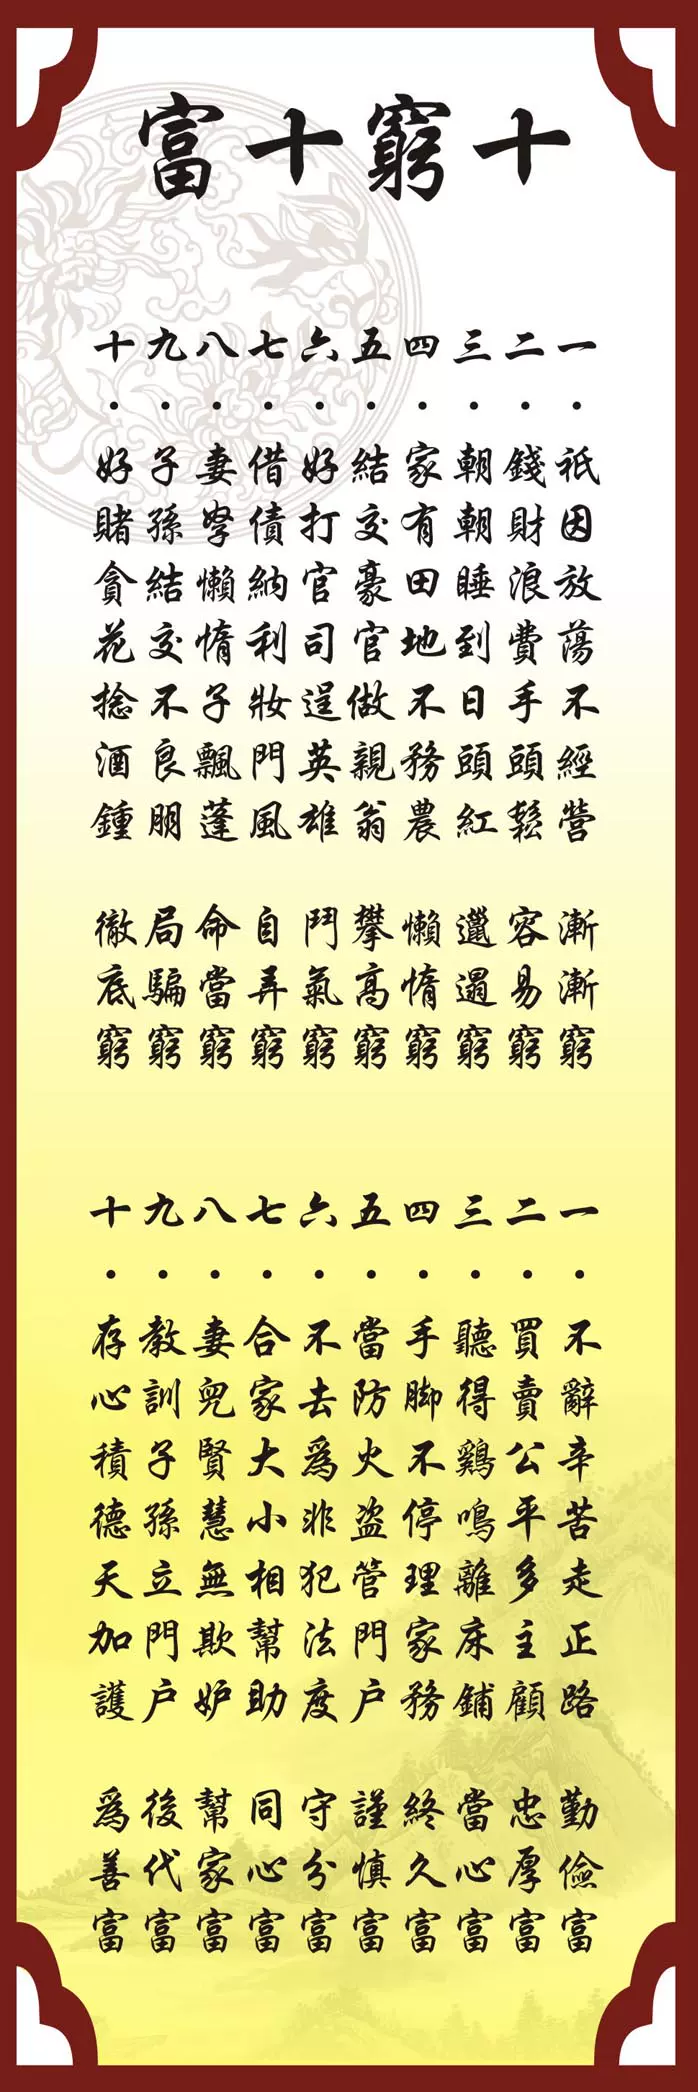 十窮十富
一．祇因放蕩不經營 漸漸窮
二．錢財浪費手頭鬆 容易窮
三．朝朝睡到日頭紅 邋遢窮
四．家有田地不務農 懶惰窮
五．結交豪官做親翁 攀高窮
六．好打官司逞英雄 鬥氣窮
七．借債納利妝門風 自弄窮
八．妻孥懶惰子飄蓬 命當窮
九．子孫結交不良朋 局騙窮
十．好賭貪花捻酒鍾 徹底窮
一．不辭辛苦走正路 勤儉富
二．買賣公平多主顧 忠厚富
三．聽得鷄鳴離床鋪 當心富
四．手脚不停理家務 終久富
五．當防火盗管門户 謹慎富
六．不去為非犯法度 守分富
七．合家大小相幫助 同心富
八．妻兒賢慧無欺妒 幫家富
九．教訓子孫立門户 後代富
十．存心積德天加護 為善富